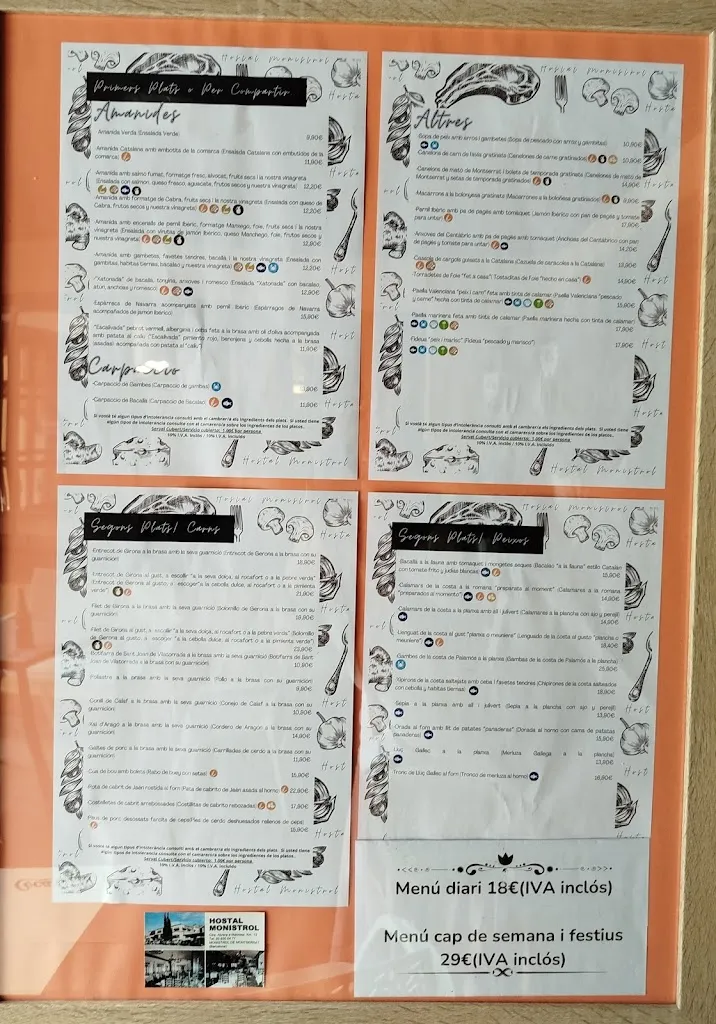 Hostal Monistrol
Primers Plats o Per Compartir
Amanides
Amanida Verda (Ensalada Verde)
9,90€
Amanida Catalana amb embotits de la comarca (Ensalada Catalana con embutidos de la
comarca)
11,90€
Amanida amb salmó fumat, formatge fresc, alvocat, fruits secs i la nostra vinagreta
(Ensalada con salmón, queso fresco, aguacate, frutos secos y nuestra vinagreta)
12,20€
Amanida amb formatge de Cabra, fruits secs i la nostra vinagreta (Ensalada con queso de
Cabra, frutos secos y nuestra vinagreta)
12,20€
Amanida amb encenalls de pernil ibèric, formatge Manxego, foie, fruits secs i la nostra
vinagreta (Ensalada con virutas de jamón ibérico, queso Manchego, foie, frutos secos y
nuestra vinagreta)
12,90€
Amanida amb gambetes, favetes tendres, bacallà i la nostra vinagreta (Ensalada con
gambitas, habitas tiernas, bacalao y nuestra vinagreta)
12,20€
"Xatonada" de bacallà, tonyina, anxoves i romesco (Ensalada "Xatonada" con bacalao,
atún, anchoas y romesco)
12,90€
Espàrrecs de Navarra acompanyats amb pernil ibèric (Espárragos de Navarra
acompañados de jamón ibérico)
15,90€
"Escalivada" pebrot vermell, albergínia i ceba feta a la brasa amb oli d'oliva acompanyada
amb patata al caliu ("Escalivada" pimiento rojo, berenjena y cebolla hecha a la brasa
11,90€
Carpaccio
Carpaccio de Gambes (Carpaccio de gambas)
Carpaccio de Bacallà (Carpaccio de Bacalao)
11,90€
Si vostè té algun tipus d'intolerància consulti amb el cambrer/a els ingredients dels plats. Si usted tiene
algún tipos de intolerancia consulte con el camarero/a sobre los ingredientes de los platos.
Servei Cubert/Servicio cubierto: 1,00€ por persona
10% I.V.A. Inclòs / 10% I.V.A. Incluido
Hostal Monistrol
Hostal Monistrol
Altres
Sopa de peix amb arròs i gambetes (Sopa de pescado con arroz y gambitas)
10,90€
Canelons de carn de l'àvia gratinats (Canelones de carne gratinados)
10,90€
Canelons de mató de Montserrat i bolets de temporada gratinats (Canelones de mató de
Montserrat y setas de temporada gratinados)
14,90€
Macarrons a la bolonyesa gratinats (Macarrones a la boloñesa gratinados)
9,90€
Pernil ibèric amb pa de pagès amb tomàquet (Jamón ibérico con pan de pagés y tomate
para untar)
17,90€
Anxoves del Cantàbric amb pa de pagès amb tomàquet (Anchoas del Cantábrico con pan
de pagés y tomate para untar)
14,20€
Cassola de cargols guisats a la Catalana (Cazuela de caracoles a la Catalana)
13,90€
Torradetes de Foie "fet a casa" (Tostaditas de Foie "hecho en casa")
14,90€
Paella Valenciana "peix i carn" feta amb tinta de calamar (Paella Valenciana "pescado
y carne" hecha con tinta de calamar)
Paella marinera feta amb tinta de calamar (Paella marinera hecha con tinta de calamar)
17,90€
Fideus "peix i marisc" (Fideus "pescado y marisco")
17,90€
Si vostè té algun tipus d'intolerància consulti amb el cambrer/a els ingredients dels plats. Si usted tiene
algún tipos de intolerancia consulte con el camarero/a sobre los ingredientes de los platos.
Servei Cubert/Servicio cubierto: 1,00€ por persona
10% I.V.A. Inclòs / 10% I.V.A. Incluido
Hostal Monistrol
Hostal Monistrol
Segons Plats/ Carns
Entrecot de Girona a la brasa amb seva guarnició (Entrecot de Gerona a la brasa con su
guarnición)
18,90€
Entrecot de Girona al gust, a escollir "a la seva dolça, al rocafort o a la pebre verda"
(Entrecot de Gerona al gusto, a escoger "a la cebolla dulce, al rocafort o a la pimienta
verde")
21,90€
Filet de Girona a la brasa amb seva guarnició (Solomillo de Gerona a la brasa con su
guarnición)
Filet de Girona al gust, a escollir "a la seva dolça, al rocafort o a la pebre verda" (Solomillo
de Gerona al gusto, a escoger "a la cebolla dulce, al rocafort o a la pimienta verde")
23,90€
Botifarra de Sant Joan de Vilatorrada a la brasa amb seva guarnició (Butifarra de Sant
Joan de Vilatorrada a la brasa con su guarnición)
10,90€
Pollastre a la brasa amb seva guarnició (Pollo a la brasa con su guarnición)
9,90€
Conill de Calaf a la brasa amb la seva guarnició (Conejo de Calaf a la brasa con su
guarnición)
10,90€
Xai d'Aragó a la brasa amb seva guarnició (Cordero de Aragón a la brasa con su
guarnición)
14,90€
Galtes de porc a la brasa amb seva guarnició (Carrilladas de cerdo a la brasa con su
guarnición)
11,90€
Cua de bou amb bolets (Rabo de buey con setas)
15,90€
Pota de cabrit de Jaén rostida al forn (Pata de cabrito de Jaén asada al horno)
22,90€
Costelletes de cabrit arrebossades (Costillitas de cabrito rebozadas)
17,90€
Peus de porc desossats farcits de ceps (Pies de cerdo deshuesados rellenos de ceps)
18,90€
Si vostè té algun tipus d'intolerància consulti amb el cambrer/a els ingredients dels plats. Si usted tiene
algún tipos de intolerancia consulte con el camarero/a sobre los ingredientes de los platos.
Servei Cubert/Servicio cubierto: 1,00€ por persona
10% I.V.A. Inclòs / 10% I.V.A. Incluido
Hostal Monistrol
Hostal Monistrol
Segons Plats/ Peixos
Bacallà a la llauna amb tomàquet i mongetes seques (Bacalao "a la llauna" estilo Catalán
con tomate frito y judías blancas)
15,90€
Calamars de la costa a la romana "preparats al moment" (Calamares a la romana
"preparados al momento")
14,90€
Calamars de la costa a la planxa amb all i julivert (Calamares a la plancha con ajo y perejil)
14,90€
Llenguat de la costa al gust "planxa o meuniere" (Lenguado de la costa al gusto "plancha o
meuniere")
18,40€
Gambes de la costa de Palamós a la planxa (Gambas de la costa de Palamós a la plancha)
25,90€
Xipirons de la costa saltejats amb ceba i favetes tendres (Chipirones de la costa salteados
con cebolla y habitas tiernas)
18,90€
Sèpia a la planxa amb all i julivert (Sepia a la plancha con ajo y perejil)
13,90€
Orada al forn amb llit de patates "panaderas" (Dorada al horno con cama de patatas
panaderas)
15,90€
Lluç Gallec a la planxa (Merluza Gallega a la plancha)
13,90€
Tronc de Lluç Gallec al forn (Tronco de merluza al horno)
18,90€
Menú diari 18€(IVA inclós)
Menú cap de semana i festius
29€(IVA inclós)
HOSTAL
MONISTROL